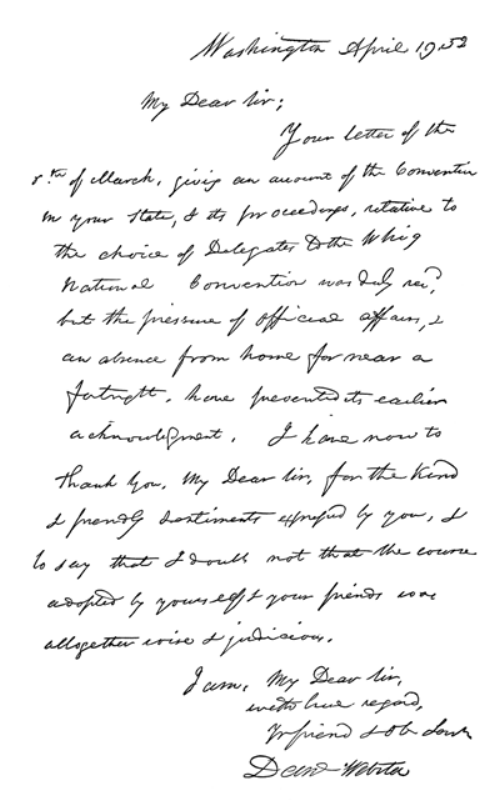 Washington April 19 52
My Dear Sir;
Your letter of the
8.th of March, giving an account of the Convention
in your State, & its proceedings, relative to
the choice of Delegates to the Whig
National Convention was duly recd,
but the pressure of official affairs, &
an absence from home for near a
fortnight, have prevented its earlier
acknowledgment. I have now to
thank you, My Dear Sir, for the kind
& friendly sentiments expressed by you, &
to say that I doubt not that the course
adopted by yourself & your friends was
altogether wise & judicious.
I am, My Dear Sir,
with true regard,
Yr friend & Ob. Servt
Danl Webster